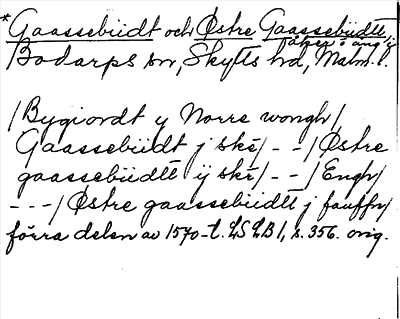 *Gaassebüdt och Østre Gaassebüdtt,
åker o äng i
Bodarps sn, Skytts hd, Malm. l.
/Bygiordt y Norre wongh/
Gaassebüdt j ske/ - - /Østre
gaassebüdtt ij ske/ - - /Engh/
- - - / Østre gaassebüdtt j fauffn/
förra delen av 1570-t. LSLB 1, s. 356. orig.